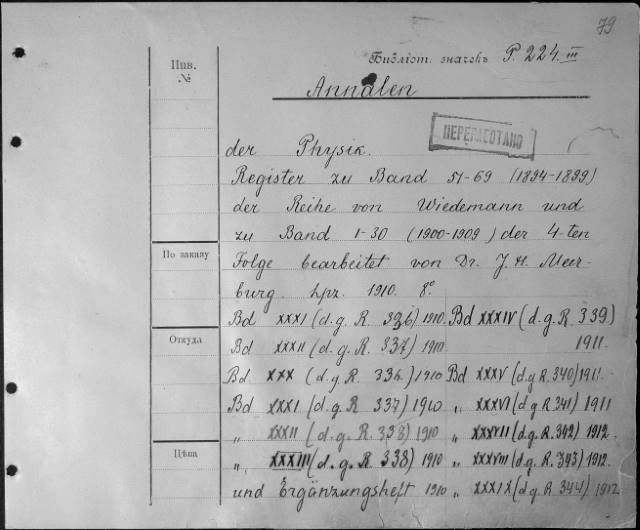 79
Инв.
№
Библіот. значекъ P. 224. III
Annalen
ПЕРЕРАБОТАНО
der Physik.
Register zu Band 51-69 (1894-1899)
der Reihe von Wiedemann und
zu Band 1-30 (1900-1909) der 4-ten
По заказу
Folge bearbeitet von Dr. J. H. Meer-
burg. Lpz. 1910. 8°.
Bd XXXI (d. g. R. 336) 1910. Bd XXXIV (d. g. R. 339)
Откуда
Bd XXXII (d. g. R. 337) 1910 1911.
Bd XXX (d. g. R. 336) 1910 Bd XXXV (d. g. R. 340) 1911.
Bd XXXI (d. g. R. 337) 1910 „ XXXVI (d. g. R. 341) 1911
„ XXXII (d. g. R. 338) 1910 „ XXXVII (d. g. R. 342) 1912.
Цѣна
„ XXXIII (d. g. R. 338) 1910 „ XXXVIII (d. g. R. 343) 1912.
und Ergänzungsheft 1910 „ XXXIX (d. g. R. 344) 1912